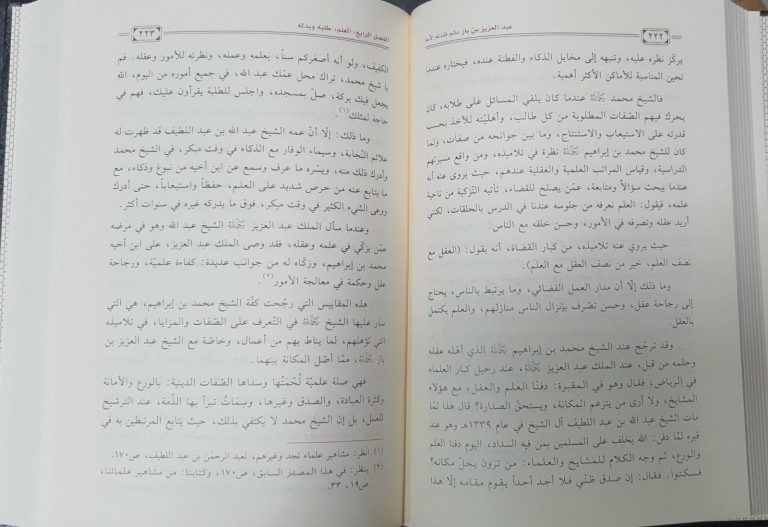 ٢٢٢
عبد العزيز بن باز عالم فقدته الأمة
يركّز نظره عليه، وتنبهه إلى مخايل الذكاء والفطنة عنده، فيختاره عندما
تحين المناسبة للأماكن الأكثر أهمية.
فالشيخ محمد رحمه الله عندما كان يلقي المسائل على طلابه، كان
يحرك فيهم الصّفات المطلوبة من كل طالب، وأهليّته للأخذ بحسب
قدرته على الاستيعاب والاستنتاج، وما بين جوانحه من صفات، ولما
كان للشيخ محمد بن إبراهيم رحمه الله نظرة في تلاميذه، ومن واقع مسيرتهم
الدراسية، وقياس المراتب العلمية والعقلية عندهم، حيث يروى عنه أنه
عندما يبحث سؤالاً ومتابعة، عمّن يصلح للقضاء، تأتيه التّزكية من ناحية
علمه، فيقول: العلم نعرفه من جلوسه عندنا في الدرس بالحلقات، لكني
أريد عقله وتصرفه في الأمور، وحسن خلقه مع الناس.
حيث يروي عنه تلاميذه، من كبار القضاة، أنه يقول: (العقل مع
نصف العلم، خير من نصف العقل مع العلم).
وما ذلك إلّا أن مدار العمل القضائي، وما يرتبط بالناس، يحتاج
إلى رجاحة عقل، وحسن تصّرف بإنزال الناس منازلهم، والعلم يكتمل
بالعقل.
وقد ترجّح عند الشيخ محمد بن إبراهيم رحمه الله الذي أهّله عقله
وحلمه من قبل، عند الملك عبد العزيز رحمه الله، عند رحيل كبار العلماء
في الرياض، فقال وهو في المقبرة: دفنّا العلم والعقل، مع هؤلاء
المشايخ، ولا أرى من يتزعم المكانة، ويستحقّ الصدارة؟ قال هذا لمّا
مات الشيخ عبد الله بن عبد اللطيف آل الشيخ في عام ١٣٣٩هـ وهو عند
قبره لمّا دفن: الله يخلف على المسلمين بمن فيه السداد، اليوم دفنا العلم
والورع، ثم وجه الكلام للمشايخ والعلماء: من ترون يحلّ مكانه؟
فسكتوا. فقال: إن صدق ظنّي فلا أجد أحداً يقوم مقامه إلّا هذا
الفصل الرابع: العلم: طلبه وبذله
٢٢٣
الكفيف، ولو أنه أصغركم سناً، بعلمه وعمله، ونظرته للأمور وعقله. قم
يا شيخ محمد، تراك محل عمّك عبد الله، في جميع أموره من اليوم، الله
يجعل فيك بركة، صلّ بمسجده، واجلس للطلبة يقرأون عليك، فهم في
حاجة لمثلك(١).
وما ذلك: إلّا أنّ عمه الشيخ عبد الله بن عبد اللطيف قد ظهرت له
علائم النّجابة، وسيماء الوقار مع الذكاء في وقت مبكر، في الشيخ محمد
وأدرك ذلك منه، ويسّره ما عرف وسمع عن ابن أخيه من نبوغ وذكاء، مع
ما يتابع عنه من حرص شديد على العلم، حفظاً واستيعاباً، حتى أدرك
ووعى الشيء الكثير في وقت مبكر، فوق ما يدركه غيره في سنوات أكثر.
وعندما سأل الملك عبد العزيز رحمه الله الشيخ عبد الله وهو في مرضه
عمّن يزكّي في علمه وعقله، فقد وصى الملك عبد العزيز، على ابن أخيه
محمد بن إبراهيم، وزكّاه له من جوانب عديدة: كفاءة علميّة، ورجاحة
عقل وحكمة في معالجة الأمور(٢).
هذه المقاييس التي رجّحت كفّة الشيخ محمد بن إبراهيم، هي التي
سار عليها الشيخ رحمه الله في التعرف على الصّفات والمزايا، في تلاميذه
التي تؤهلهم، لما يناط بهم من أعمال، وخاصّة مع الشيخ عبد العزيز بن
باز رحمه الله، ممّا أصّل المكانة بينهما.
فهي صلة علميّة لُحْمَتُها وسداها الصّفات الدينية: بالورع والأمانة
وكثرة العبادة، والصدق وغيرها، وسِمَاتُ تبرأ بها الذّمة، عند الترشيح
للعمل، بل إن الشيخ محمد لا يكتفي بذلك، حيث يتابع المرتبطين به في
(١) انظر: مشاهير علماء نجد وغيرهم، لعبد الرحمن بن عبد اللطيف، ص١٧٠.
(٢) ينظر: في هذا المصدر السابق، ص١٧٠، وكتابنا: من مشاهير علمائنا،
ص١٩، ٣٣.